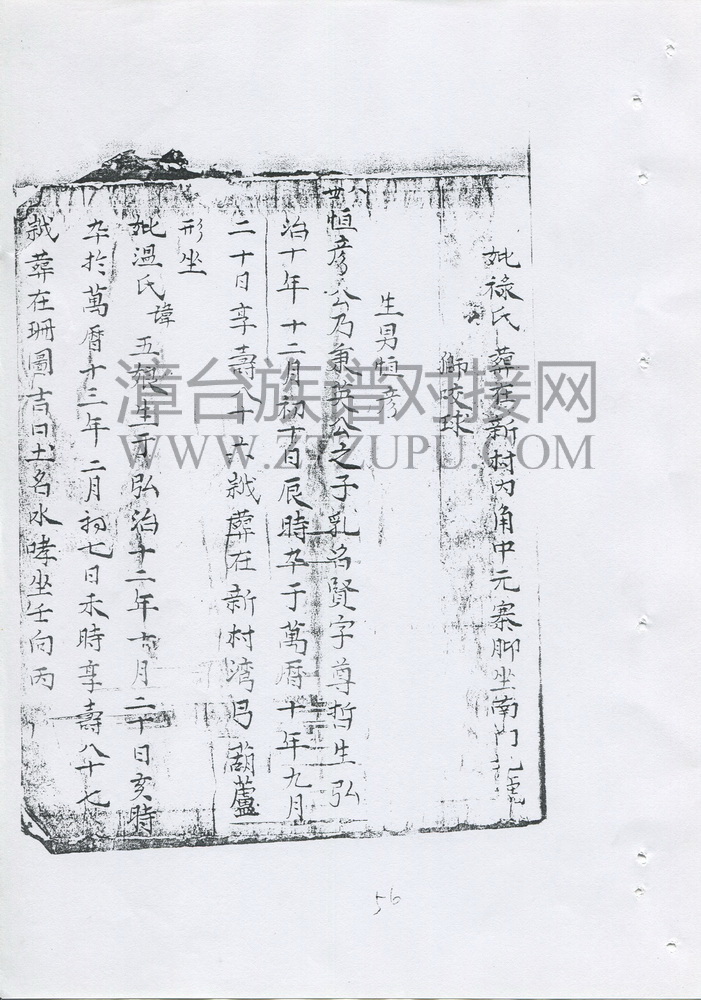 妣祿氏 葬在新村內角中元寨腳坐南門
獅咬球
生男恒彥
八世
恒彥公乃兼英公之子乳名賢字尊哲生弘
治十年十二月初十日辰時卒于萬曆十年九月
二十日享壽八十六歲葬在新村湾弓葫蘆
形坐
妣溫氏諱五娘生于弘治十二年十月二十日亥時
卒於萬曆十三年二月初七日未時享壽八十七
歲葬在珊圖吉口土名水哮坐壬向丙
漳台族谱对接网
WWW.ZTZUPU.COM
56